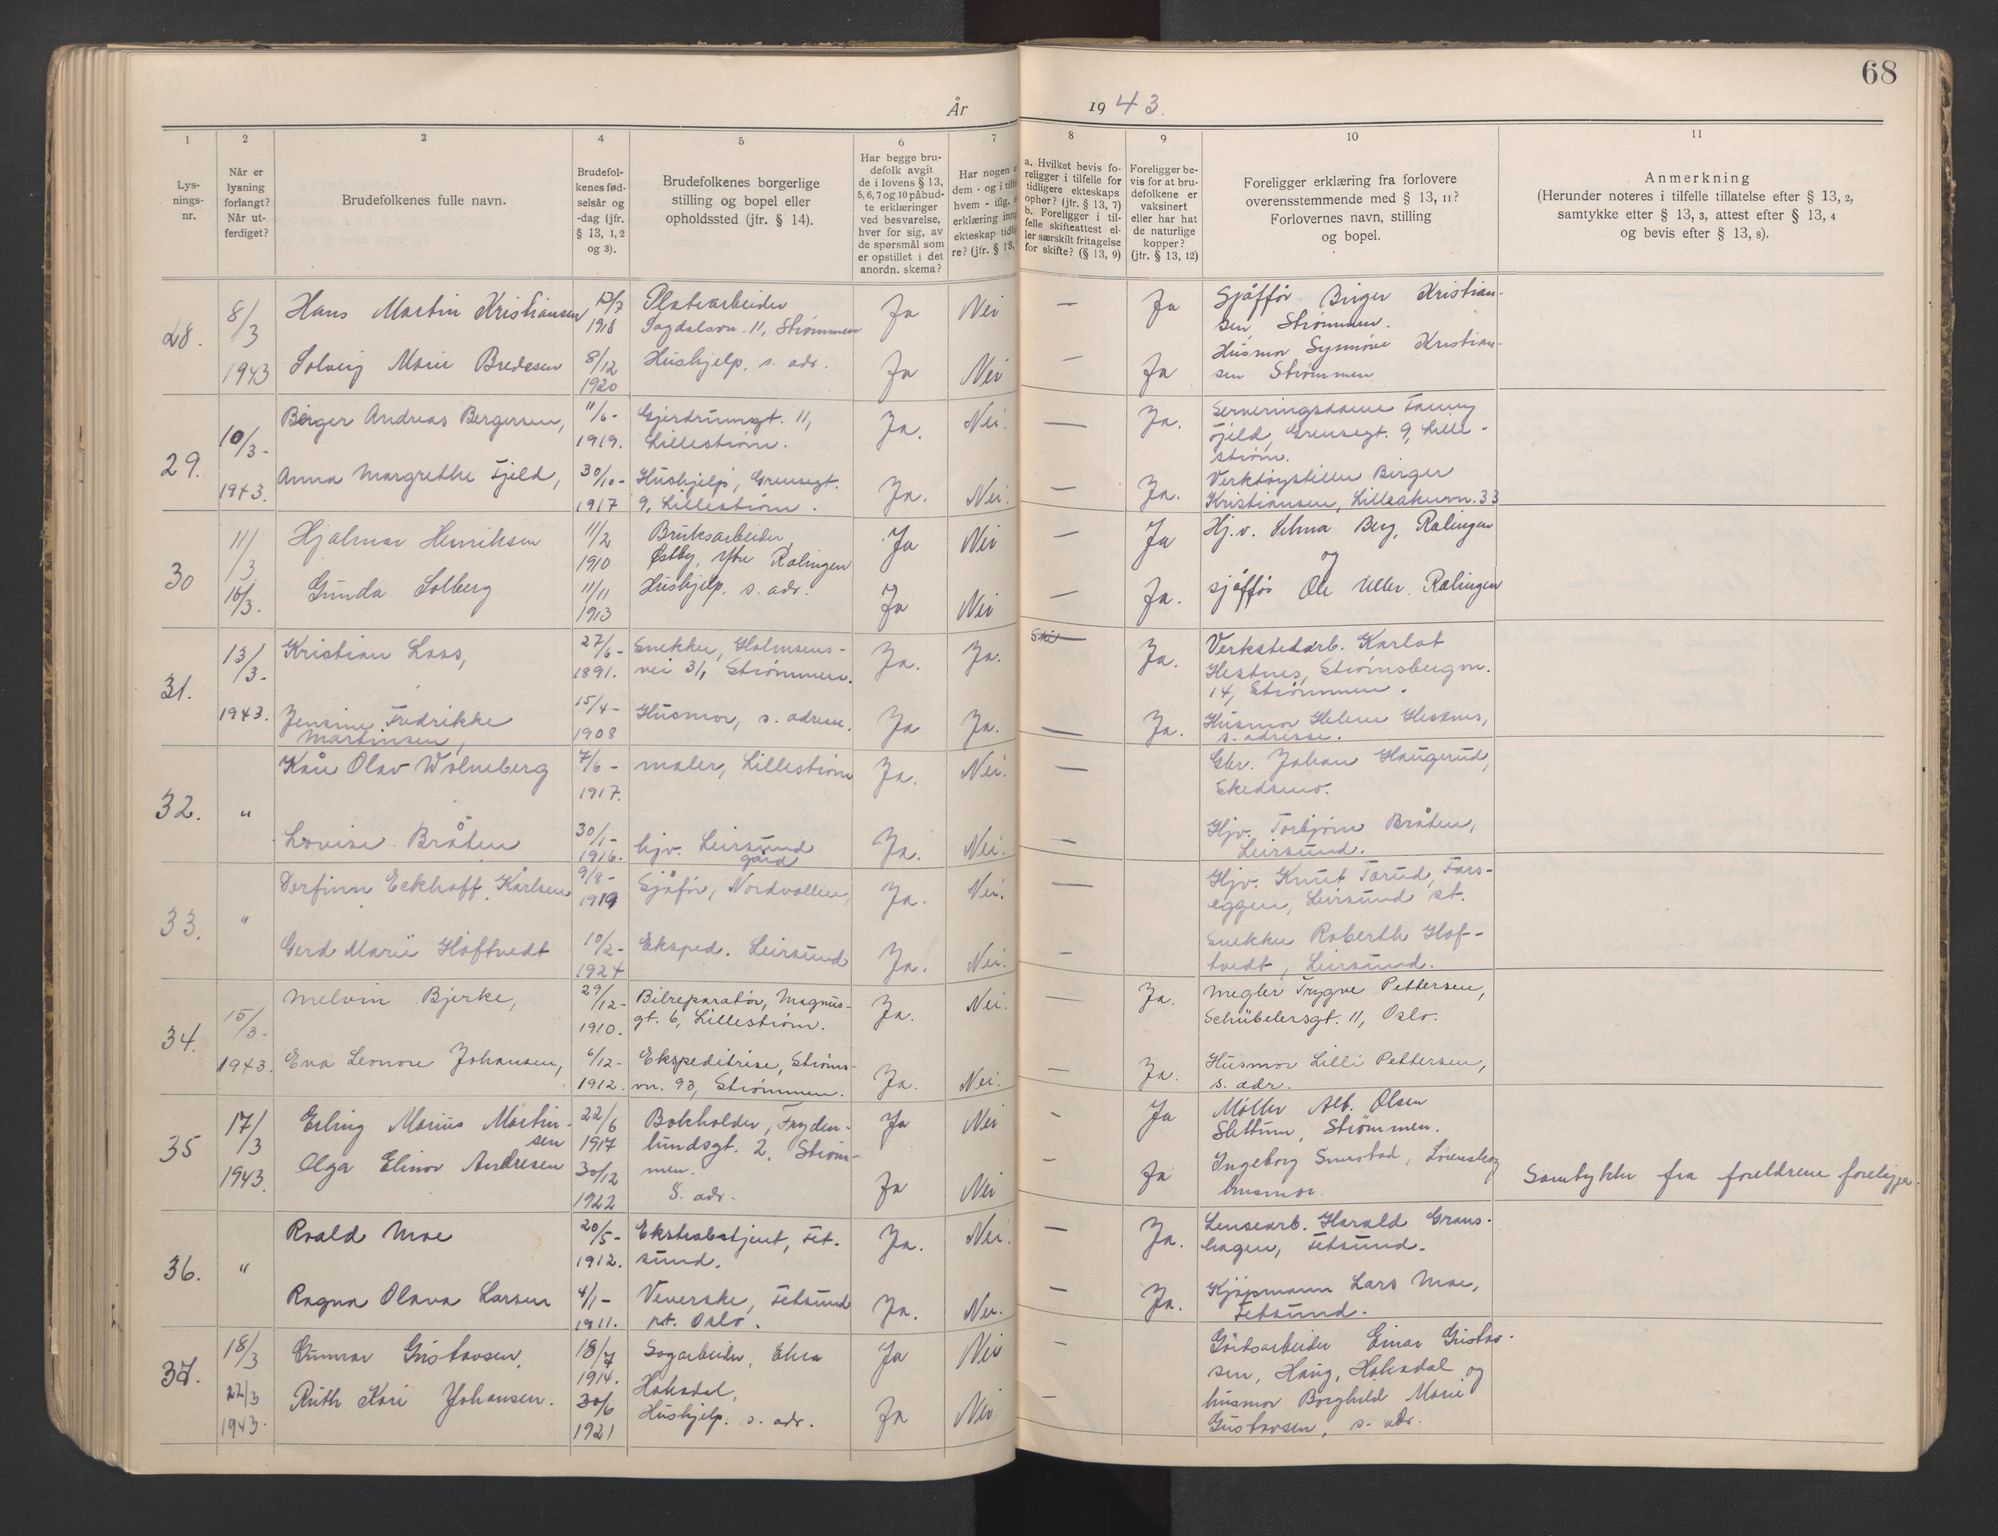 68
År 1943.
1 2 3 4 5 6 7 8 9 10 11
Lys-
nings-
nr.
Når er
lysning
forlangt?
Når ut-
ferdiget?
Brudefolkenes fulle navn.
Brudefol-
kenes fød-
selsår og
-dag (jfr.
§ 13, 1, 2
og 3).
Brudefolkenes borgerlige
stilling og bopel eller
opholdssted (jfr. § 14).
Har begge bru-
defolk avgit
de i lovens § 13,
5, 6, 7 og 10 påbud-
te erklæringer
ved besvarelse,
hver for sig, av
de spørsmål som
er opstillet i det
anordn. skema?
Har nogen a
dem - og i tilfe
hvem - iflg.
erklæring inng
ekteskap tidlig
re? (jfr. § 13,
a. Hvilket bevis fo-
religger i tilfelle for
tidligere ekteskaps
ophør? (jfr. § 13, 7)
b. Foreligger i til-
felle skifteattest el-
ler særskilt fritagelse
for skifte? (§ 13, 9)
Foreligger be-
vis for at bru-
defolkene er
vaksinert
eller har hat
de naturlige
kopper?
(jfr. § 13, 12)
Foreligger erklæring fra forlovere
overensstemmende med § 13, 11?
Forlovernes navn, stilling
og bopel.
Anmerkning
(Herunder noteres i tilfelle tillatelse efter § 13, 2,
samtykke efter § 13, 3, attest efter § 13, 4
og bevis efter § 13, 8).
28. 8/3 1943
Hans Martin Kristiansen
/7 1918
Platearbeider
Sagdalsvn. 11, Strømmen
Ja Nei — Ja
Sjåffør Birger Kristian-
sen Strømmen.
Solveig Marie Bredesen
8/12 1920
Hushjelp, s. adr.
Ja Nei — Ja
Husmor Synnøve Kristian-
sen Strømmen
29. 10/3- 1943.
Birger Andreas Bergersen,
11/6- 1919.
Gjerdrumgt. 11,
Lillestrøm.
Ja. Nei. — Ja.
Serveringsdame Fanny
Fjeld, Grensegt. 9, Lille-
strøm.
Anna Margrethe Fjeld,
30/10- 1917
Hushjelp, Grensegt.
9, Lillestrøm.
Ja. Nei. — Ja.
Verktøystiller Birger
Kristiansen, Lilleakervn. 33
30 11/3 16/3.
Hjalmar Henriksen
11/2 1910
Bruksarbeider,
Østby, Ytre Rælingen
Ja Nei — Ja
Hj.v. Selma Berg, Rælingen
og
Gunda Solberg
11/11 1913
Hushjelp. s. adr.
Ja Nei — Ja.
sjåffør Ole Uller, Rælingen
31. 13/3- 1943.
Kristian Laas,
27/6- 1891.
Snekker, Holmsens-
vei 31, Strømmen.
Ja. Ja. Ski Ja.
Verkstedarb. Karlot
Hestnes, Strømsbergvn.
14, Strømmen.
Jensine Fredrikke
Martinsen,
15/4- 1908
Husmor, s. adresse.
Ja Ja. — Ja.
Husmor Helene Hestnes,
s. adresse.
32. "
Kåre Olav Wølneberg
7/6- 1917.
maler, Lillestrøm
Ja. Nei. —
Gbr. Johan Haugerud,
Skedsmo.
Lovise Bråten
30/1- 1916.
hjv. Leirsund
gård
Ja. Nei. —
Hjv. Torbjørn Bråten,
Leirsund.
33. "
Dorfinn Eckhoff Karlsen
9/8- 1919
Sjåfør, Nordvollen,
Ja. Nei. —
Hjv. Knut Tarud, Fars-
eggen, Leirsund st.
Gerd Marie Høftvedt
10/2- 1924
Eksped. Leirsund
Ja. Nei. —
Snekker Roberth Høf-
tvedt, Leirsund.
34. 15/3- 1943.
Melvin Bjerke,
29/12- 1910.
Bilreparatør, Magnus-
gt. 6, Lillestrøm.
Ja. Nei. Ja.
Megler Trygve Pettersen,
Schübelersgt. 11, Oslo.
Eva Leonore Johansen,
6/12- 1912.
Ekspeditrise, Strøms-
vn. 93, Strømmen.
Ja. Nei. Ja.
Husmor Lilli Pettersen,
s. adr.
35 17/3 1943.
Erling Marius Martin-
sen
22/6 1917
Bokholder, Fryden-
lundsgt. 2, Strøm-
men.
Ja Nei - Ja
Møller Alb. Olsen
Slettum, Strømmen.
Olga Elinor Andresen
30/12 1922
S. adr.
Ja Nei - Ja
Ingeborg Smestad, Lørenskog
husmor.
Samtykke fra foreldrene foreligger.
36. "
Roald Moe
20/5- 1912.
Ekstrabetjent, Fet-
sund.
Ja. Nei. — Ja.
Lensearb. Harald Grans-
hagen, Fetsund.
Ragna Olava Larsen
4/1- 1911.
Veverske, Fetsund
pt. Oslo.
Ja. Nei. — Ja.
Kjøpmann Lars Moe,
Fetsund.
37. 18/3 22/3 1943.
Gunnar Gustavsen,
18/7 1914.
Sagarbeider,
Hakadal,
Ja Nei —
Gårdsarbeider Einar Gustav-
sen, Haug, Hakadal og
Ruth Kari Johansen.
30/6 1921
Hushjelp. s. adr.
Ja Nei —
husmor Borghild Marie
Gustavsen, s. adr.